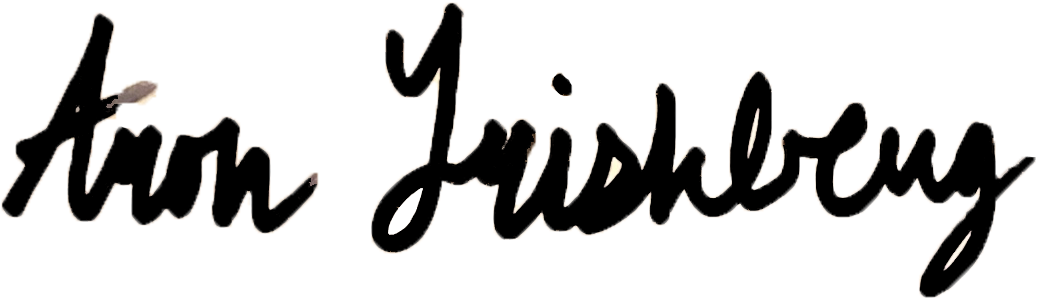 Aron Grishberg